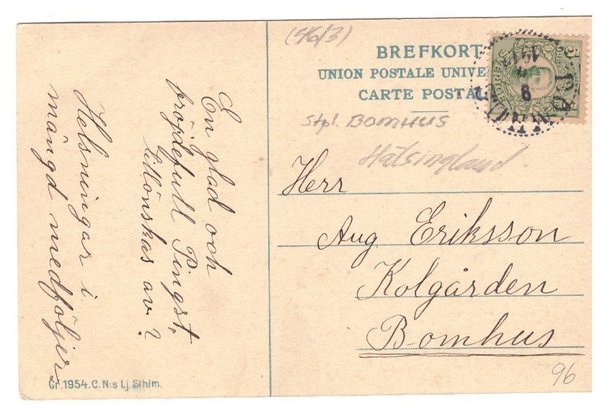 (46/3)
BREFKORT
UNION POSTALE UNIVE
CARTE POSTA
Stpl. BOMHUS
Hälsingland
Herr
Aug Eriksson
Kolgården
Bomhus
96
En glad och
fröjdefull Pingst,
tillönskas av?
Helsningar i
mängd medföljer
Gr. 1954. C. N:s Lj. Sthlm.